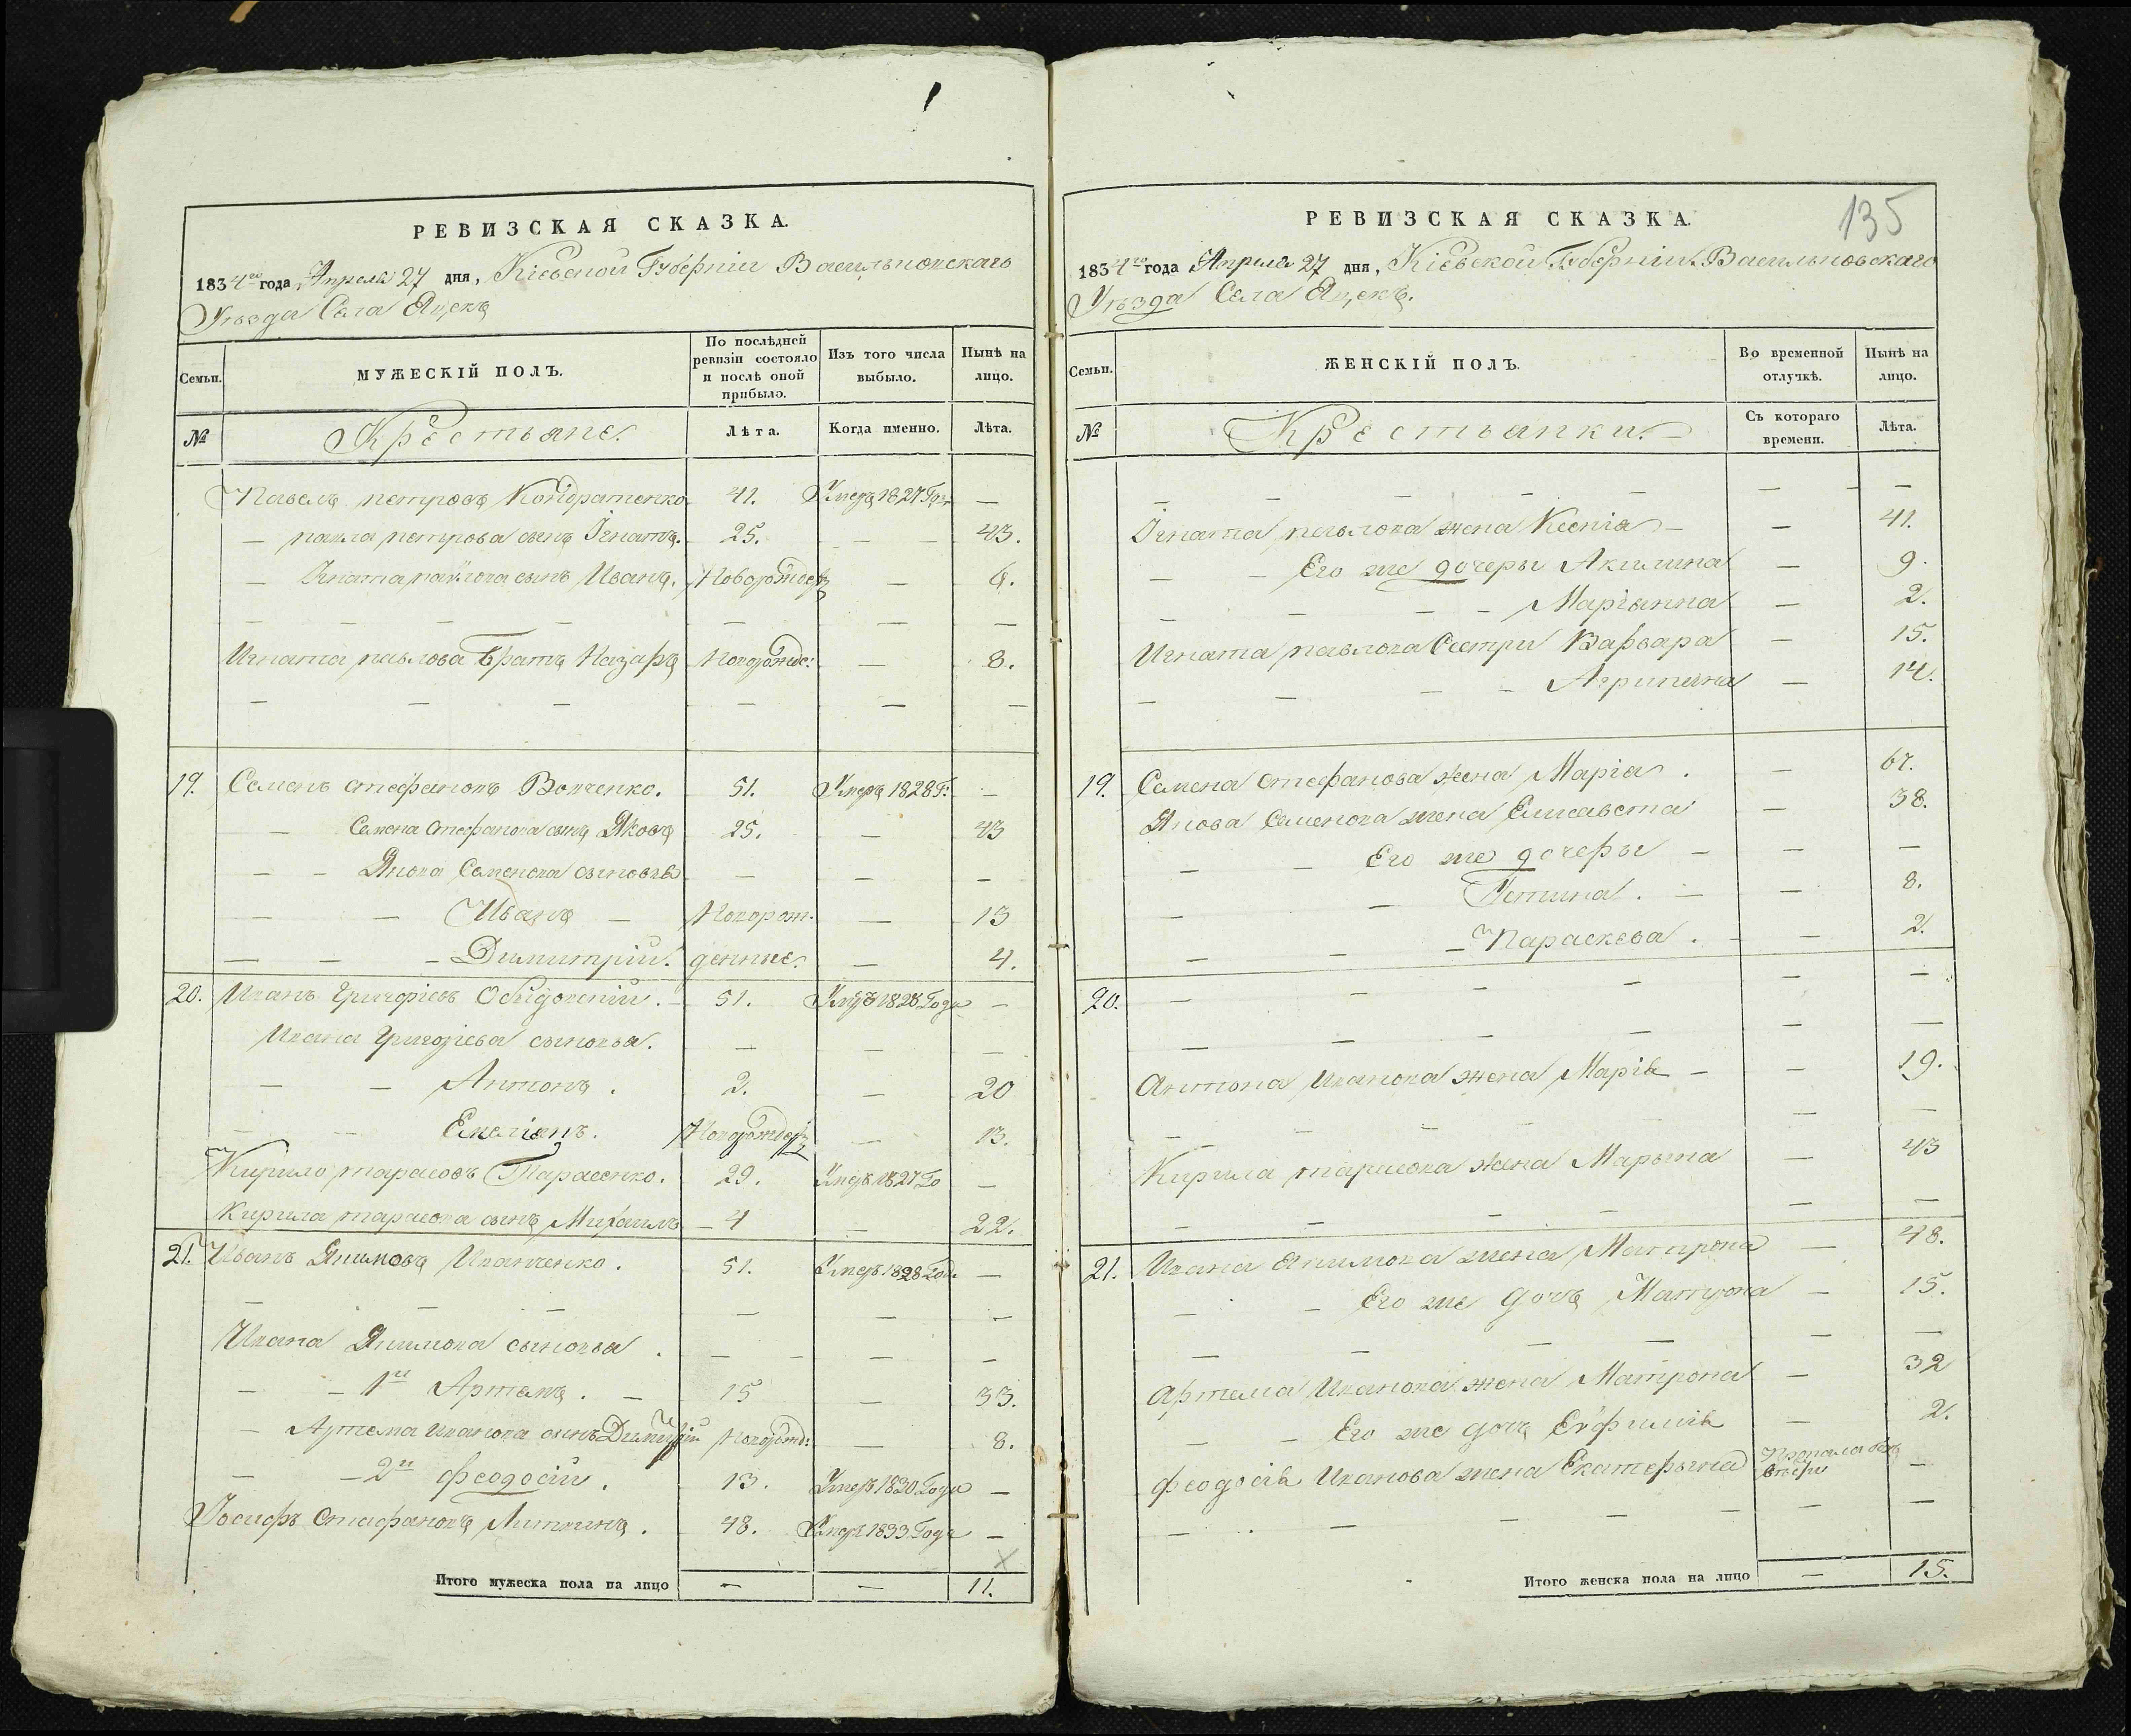 РЕВИЗСКАЯ СКАЗКА.
1834го года Апреля 27 дня, Кіевской Губерніи Васильковскаго
Уѣзда Села Яцекъ
Семьи. МУЖЕСКІЙ ПОЛЪ. По послѣдней ревизіи состояло и послѣ оной прибыло. Изъ того числа выбыло. Нынѣ на лицо.
№ Крестьяне. Лѣта. Когда именно. Лѣта.
Павелъ петровъ Кондратенко 41. Умеръ 1827 Год. —
— павла петрова сынъ Ігнатъ. 25. — — 43.
— Игната павлова сынъ Иванъ. Новорожден —
— — — — — — —
Игната павлова Братъ Назаръ Новорожде: — 8.
— — — — — —
19. Семенъ стефановъ Вовченко. 51. Умеръ 1828 Г: —
— Семена стефанова сынъ Яковъ 25. — 43
— — Якова Семенова сыновья — — —
— — Иванъ — Новорож- — 13
— — — Димитрій. денние. — 4.
20. Иванъ Григоріевъ 51. Умеръ 1828 Года —
Ивана Григоріева сыновья. — — —
— — Антонъ . 2. — 20
— — Емеліанъ. Новорожден — 13.
Кирило тарасовъ Тарасенко. 29. Умеръ 1827 Го —
Кирила тарасова сынъ Михаилъ — 4 — 22.
21. Иванъ Якимовъ Иванченко . 51. Умеръ 1828 Год. —
— — — — — —
Ивана Якимова сыновья . — — — —
— — 1й Артемъ . — 15 — 33.
— Артема Иванова сынъ Димитрій Новорожд: — 8.
— — 2й Феодосій . 13. Умеръ 1830 Года —
Іосифъ Стефановъ Литвинъ . 48. Умеръ 1833 Года —
Итого мужеска пола на лицо — — 11.
135
РЕВИЗСКАЯ СКАЗКА.
1834го года Апреля 27 дня, Кіевской Губерніи Васильковскаго
Уѣзда Села Яцекъ.
Семьи. ЖЕНСКІЙ ПОЛЪ. Во временной отлучкѣ. Нынѣ на лицо.
№ Крестьянки. Съ котораго времени. Лѣта.
— — — — — — — —
Ігната павлова жена Ксенія — — 41.
— — Его же дочеры Акилина — 9.
— — — — Маріанна — 2.
Игната павлова Сестри Варвара — 15.
— — — — Агрипина — 14.
19. Семена стефанова жена Марія . — 67.
Якова Семенова жена Елисавета — 38.
— — Его же дочеры — — —
— — Устина . — — 8.
— — — Параскева . — — 2.
20. — — — — — —
— — — — — —
Антона Иванова жена Марія — — 19.
— — — — — —
Кирила тарасова жена Марына — 43
— — — — — —
21. Ивана Якимова жена Матрона — 48.
— — Его же дочь Матрона — 15.
— — — — — —
Артема Иванова жена Матрона — 32
— — Его же дочь Евфимія — 2.
Феодосія Иванова жена Екатерына —
— . — — — — — —
Итого женска пола на лицо — 15.